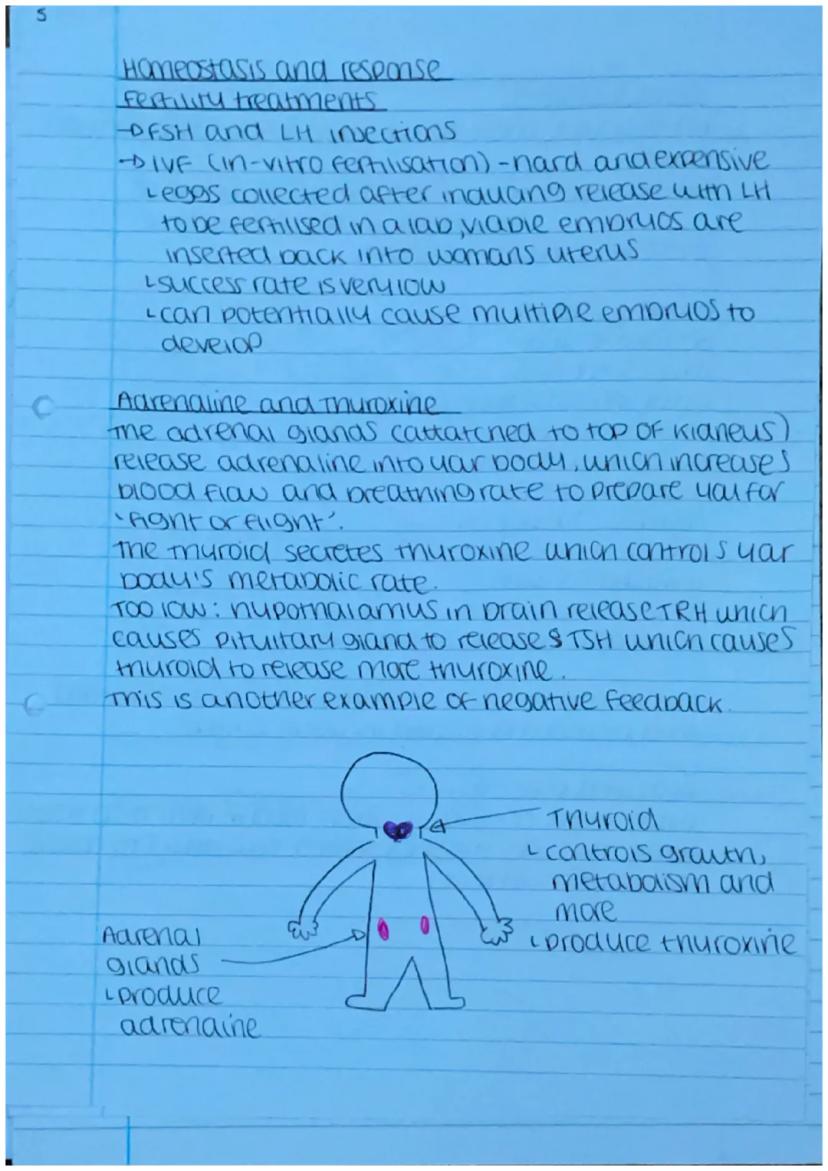 5
Homeostasis and response
Fertility treatments
→FSH and LH injections
→IVF (in-vitro fertilisation) - hard and expensive
↳eggs collected after inducing release with LH
to be fertilised in a lab, viable embryos are
inserted back into womans uterus
↳success rate is very low
↳can potentially cause multiple embryos to
develop
Adrenaline and Thyroxine
The adrenal glands (cattatched to top of kidneys)
release adrenaline into your body, which increases
blood flow and breathning rate to prepare you for
'fight or flight'.
The thyroid secretes thyroxine which controls your
body's metabolic rate.
Too low: hypothalamus in brain release TRH which
causes pituitary gland to release TSH which causes
thyroid to release more thyroxine.
This is another example of negative feedback.
Thyroid
↳controls growth,
metabolism and
more
↳produce thyroxine
Adrenal
glands
↳produce
adrenaine